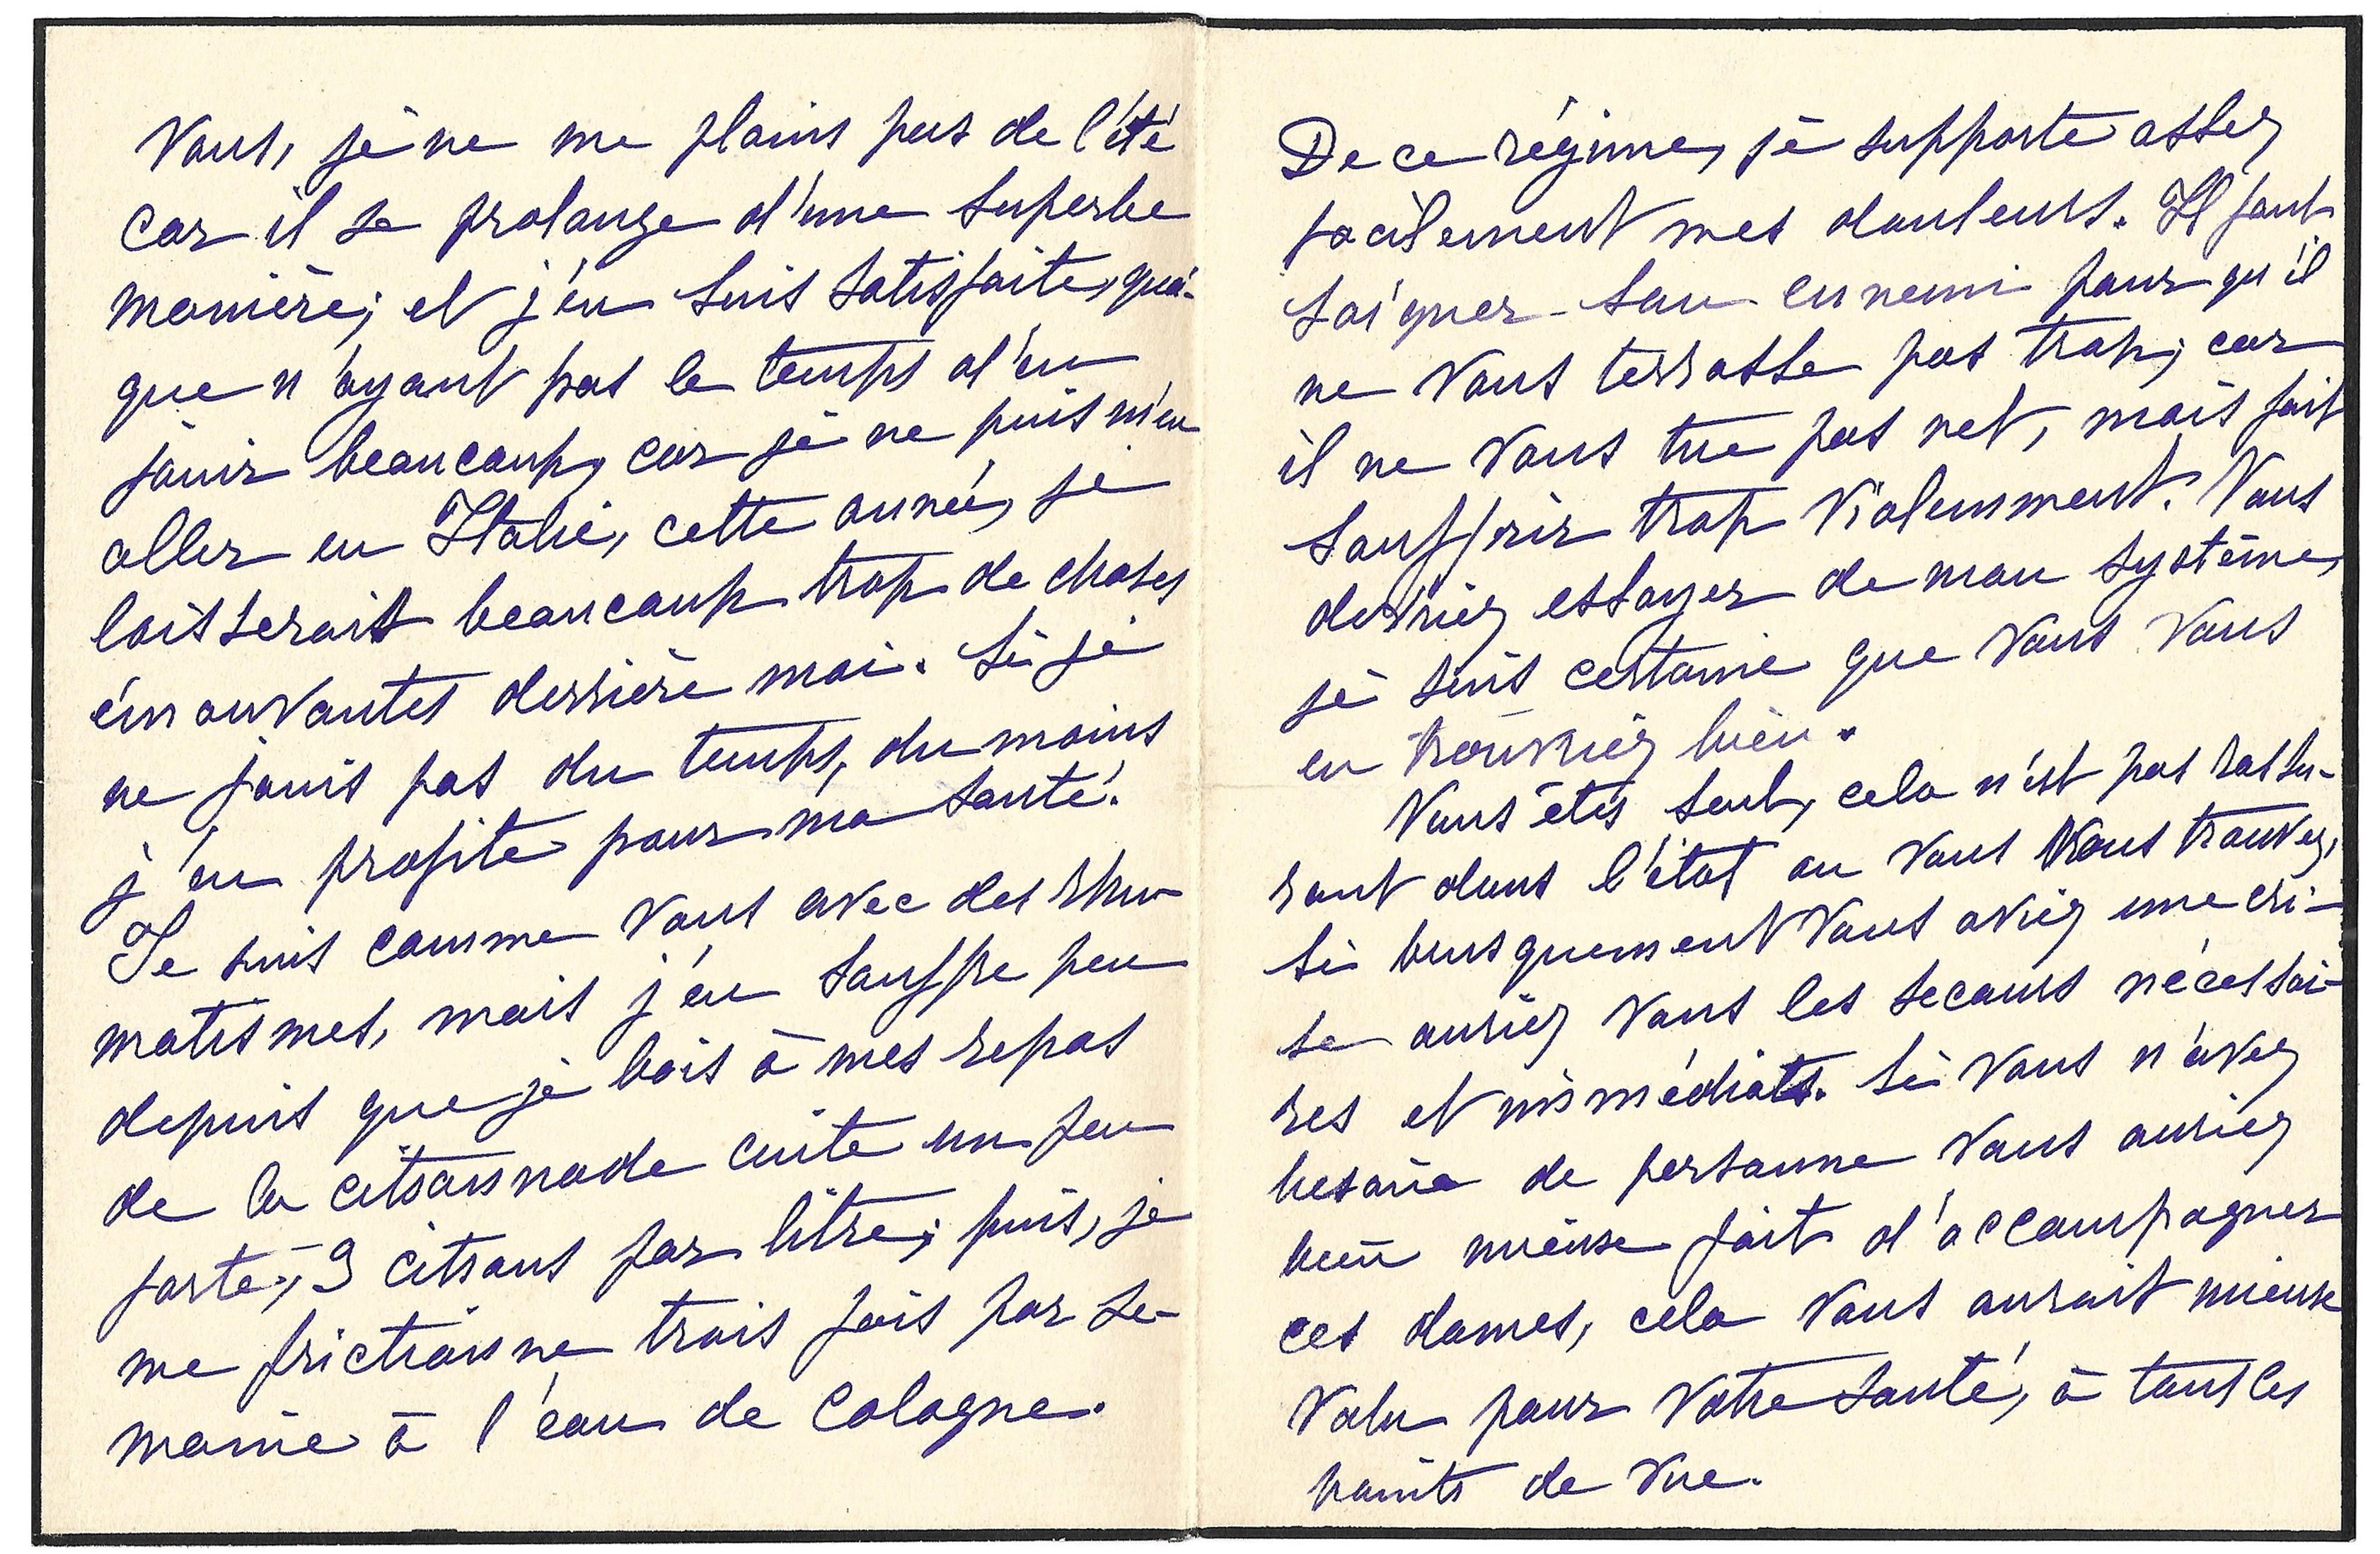 Vous, je ne me plains pas de l'été
car il se prolonge d'une superbe
manière; et j'en suis satisfaite, quoi-
que n'ayant pas le temps d'en
jouir beaucoup, car je ne puis m'en
aller en Italie, cette année, je
laisserais beaucoup trop de choses
émouvantes derrière moi. Si je
ne jouis pas du temps, du moins
j'en profite pour ma santé.
Je suis comme vous avec des rhu-
matismes, mais j'en souffre peu
depuis que je bois à mes repas
de la citronnade cuite un peu
forte, 3 citrons par litre; puis, je
me frictionne trois fois par se-
maine à l'eau de Cologne.
De ce régime, je supporte assez
facilement mes douleurs. Il faut
soigner son ennemi pour qu'il
ne vous terrasse pas trop; car
il ne vous tue pas net, mais fait
souffrir trop violemment. Vous
devriez essayer de mon système,
je suis certaine que vous vous
en trouviez bien.
Vous êtes seul, cela n'est pas rassu-
rant dans l'état ou vous vous trouvez,
si brusquement vous aviez une cri-
se auriez vous les secours nécessai-
res et immédiats. Si vous n'avez
besoin de personne vous auriez
bien mieux fait d'accompagner
ces dames, cela vous aurait mieux
valu pour votre santé, à tous les
points de vue.